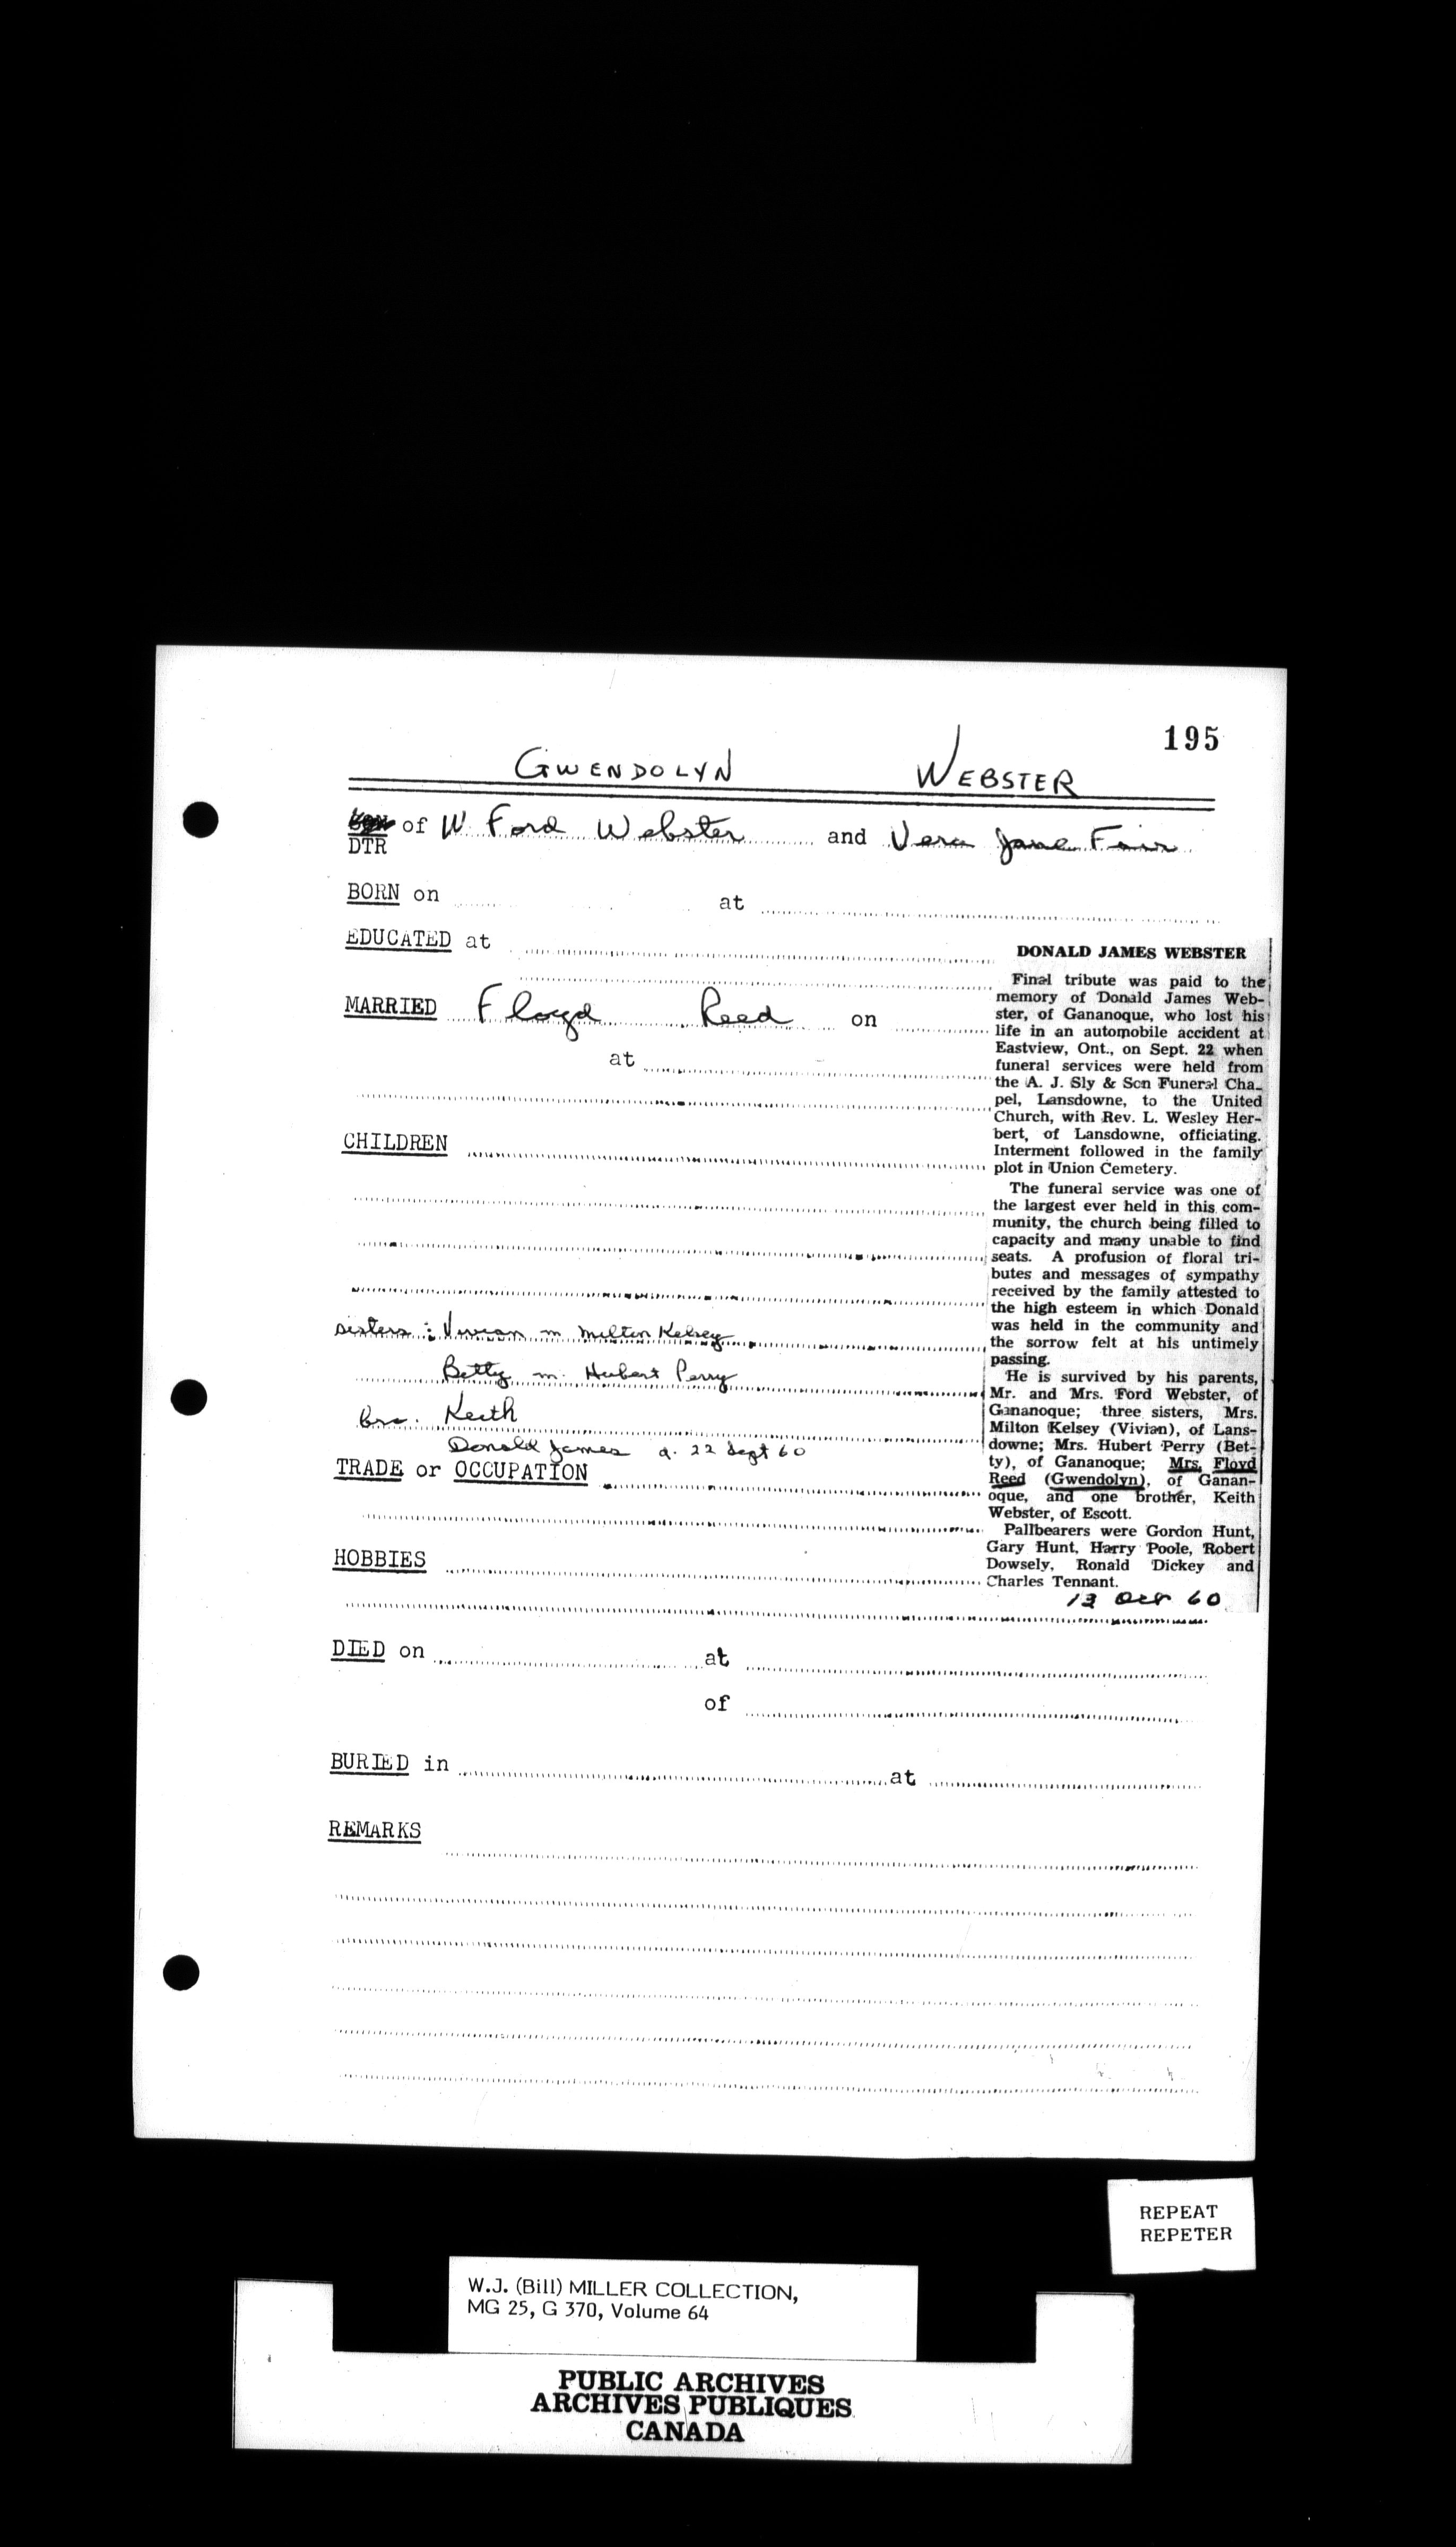 195
GWENDOLYN WEBSTER
of W. Ford Webster and Vera Jane Fair
DTR
BORN on at
EDUCATED at
MARRIED Floyd Reed on
at
CHILDREN
sisters: Vivian m Milton Kelsey
Betty m. Hubert Perry
bro. Keith
Donald James d. 22 Sept 60
TRADE or OCCUPATION
HOBBIES
DIED on at
of
BURIED in at
REMARKS
DONALD JAMES WEBSTER
Final tribute was paid to the
memory of Donald James Web-
ster, of Gananoque, who lost his
life in an automobile accident at
Eastview, Ont., on Sept. 22 when
funeral services were held from
the A. J. Sly & Son Funeral Cha-
pel, Lansdowne, to the United
Church, with Rev. L. Wesley Her-
bert, of Lansdowne, officiating.
Interment followed in the family
plot in Union Cemetery.
The funeral service was one of
the largest ever held in this com-
munity, the church being filled to
capacity and many unable to find
seats. A profusion of floral tri-
butes and messages of sympathy
received by the family attested to
the high esteem in which Donald
was held in the community and
the sorrow felt at his untimely
passing.
He is survived by his parents,
Mr. and Mrs. Ford Webster, of
Gananoque; three sisters, Mrs.
Milton Kelsey (Vivian), of Lans-
downe; Mrs. Hubert Perry (Bet-
ty), of Gananoque; Mrs. Floyd
Reed (Gwendolyn), of Ganan-
oque, and one brother, Keith
Webster, of Escott.
Pallbearers were Gordon Hunt,
Gary Hunt, Harry Poole, Robert
Dowsely, Ronald Dickey and
Charles Tennant.
13 Oct 60
REPEAT
REPETER
W.J. (Bill) MILLER COLLECTION,
MG 25, G 370, Volume 64
PUBLIC ARCHIVES
ARCHIVES PUBLIQUES
CANADA